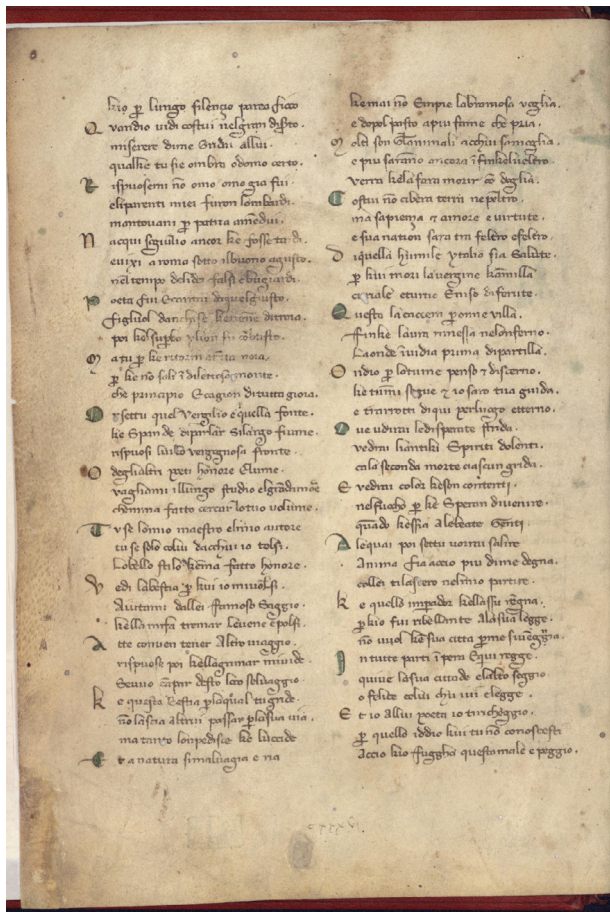 kio p lungo silenzio parea fioco
Q vandio vidi costui nel gran diserto
miserere dime gridai allui
qualke tu sie ombra odomo certo.
R ispuosemi nō omo omo gia fui
eliparenti miei furon lombardi.
mantovani p patria amēdui.
N acqui sub iulio ancor ke fosse tardi
e vixi a roma sotto ilbuono agusto.
nel tempo delidei falsi e bugiardi.
P oeta fui e cantai di quel giusto.
figliuol danchise ke venne di troia.
poi kel supbo ylion fu cōbusto.
M a tu p ke ritorni a tāta noia.
p ke nō sali i dilettoso monte.
che principio e cagion di tutta gioia.
O rsettu quel Vergilio e quella fonte.
ke spande di parlar si largo fiume.
rispuosi lui cō vergognosa fronte.
O deglialtri poeti honore elume.
vagliami illungo studio el grādamore
chemma fatto cercar lo tuo volume.
T use lomio maestro elmio autore
tu se solo colui dacchui io tolsi.
lobello stilo ke ma fatto honore.
V edi labestia p kui io mi volsi.
aiutami dallei famoso saggio.
kella mi fa tremar levene e polsi.
A tte conven tener altro viaggio.
rispuose poi kellagrimar mi vide
se vuo campar desto loco selvaggio
K e questa bestia p la qual tu gride.
nō lascia altrui passar p la sua via.
ma tanto lonpedisce ke luccide
E t a natura si malvagia e ria
ke mai nō empie la bramosa voglia.
e dopol pasto a piu fame che pria.
M olti son glanimali acchui samoglia.
e piu sarāno ancora i finkelveltro.
verra kella fara morir cō doglia.
C ostui nō cibera terra ne peltro.
ma sapienza & amore e virtute.
e sua nation sara tra feltro e feltro.
D i quella humile ytalia fia salute.
p kui mori la vergine kamilla
eurialo e turno e niso di ferute.
Q uesto la caccera p onne villa.
finke lavra rimessa nelonferno.
la onde īvidia prima dipartilla.
O ndio p lo tu me penso & discerno.
ke tu mi segue & io saro tua guida.
e trarrotti di qui per luogo etterno.
O ve udirai le disperate strida.
vedrai li antiki spiriti dolenti.
ca la seconda morte ciascun grida.
E vedrai color ke son contenti.
nel fuocho p ke speran di venire.
quādo ke sia a le beate genti.
A le quai poi settu vorrai salire
anima fia accio piu di me degna.
collei ti lascero nel mio partire.
K e quello impador kellassu regna.
p kio fui ribellante a la sua legge.
nō vuol ke sua citta p me si vegna.
I n tutte parti īpera e qui regge.
quivi e la sua cittade e lalto seggio
o felice colui chu ivi elegge.
E t io allui poeta io ti richeggio.
p quello iddio ke tu nō conoscesti
accio kio fugga questo male e peggio.